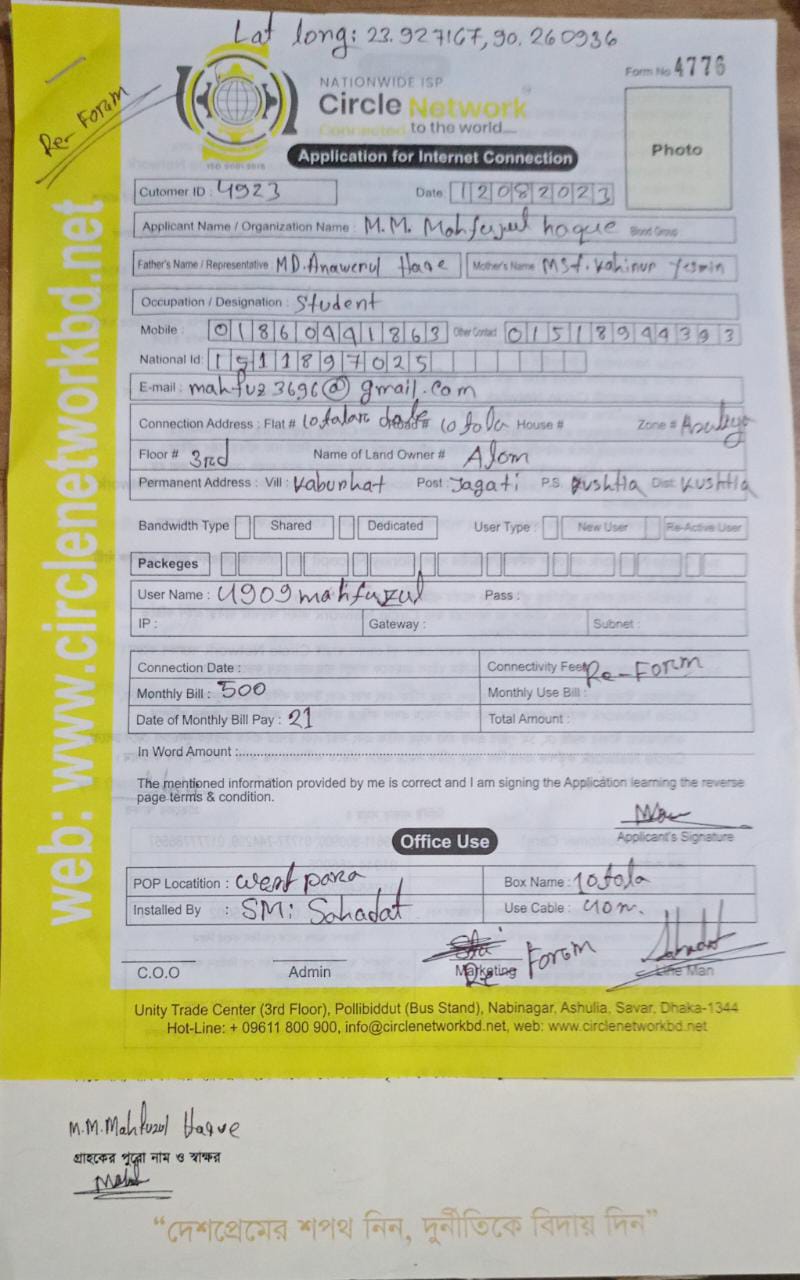 Lat long: 23.927167, 90.260936
Rer Foram
Form No 4776
NATIONWIDE ISP
Circle Network
Connected to the world....
ISO 9001:2015
Photo
Application for Internet Connection
Cutomer ID : 4923 Date: 12082023
Applicant Name / Organization Name : M.M. Mahfujul haque Blood Group
Father's Name / Representative : MD. Anawerul Haque Mother's Name : MSt. Kohinur Yesmin
Occupation / Designation : Student
Mobile : 01860991863 Other Contact 01518944393
National Id: 1511897025
E-mail : mahfuz3696@gmail.com
Connection Address : Flat # 10 tola House # Zone #
Floor # 3rd Name of Land Owner # Alom
Permanent Address : Vill : Kaburhat Post : Jagati P.S. Kushtia Dist: Kushtia
Bandwidth Type Shared Dedicated User Type : New User Re-Active User
Packeges
User Name : 4909mahfuzul Pass :
IP : Gateway : Subnet :
Connection Date : Connectivity Fee: Re-Form
Monthly Bill : 500 Monthly Use Bill :
Date of Monthly Bill Pay : 21 Total Amount :
In Word Amount :
The mentioned information provided by me is correct and I am signing the Application learning the reverse
page terms & condition.
Applicant's Signature
Office Use
POP Locatition : West para Box Name : 10 tola
Installed By : SM: Sahadat Use Cable : 40m.
Sahadat
C.O.O Admin Marketing Re Foram Line Man
Unity Trade Center (3rd Floor), Pollibiddut (Bus Stand), Nabinagar, Ashulia, Savar, Dhaka-1344
Hot-Line: + 09611 800 900, info@circlenetworkbd.net, web: www.circlenetworkbd.net
web: www.circlenetworkbd.net
M.M.Mahfuzul Haque
গ্রাহকের পুরো নাম ও স্বাক্ষর
“দেশপ্রেমের শপথ নিন, দুর্নীতিকে বিদায় দিন”